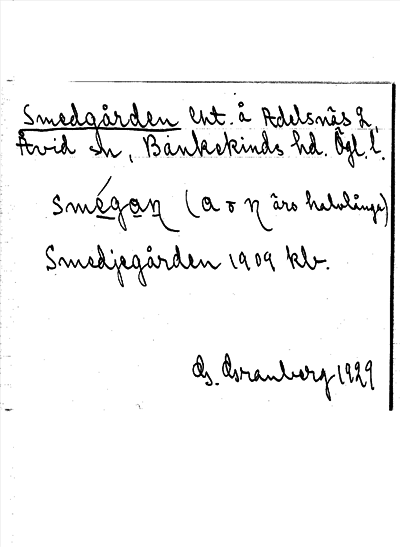 Smedgården lht. å Adelsnäs g.
Åvid sn, Bankekinds hd. Ögl. l.
smégan (a o n äro halvlånga)
Smedjegården 1909 kb.
G. Granberg 1929